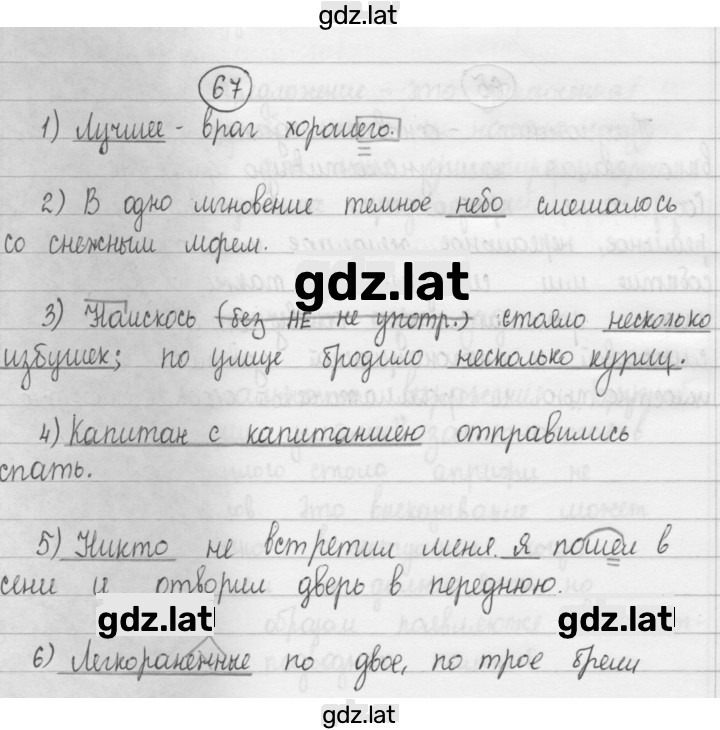 gdz.lat
67
1) Лучшее - враг хорошего.
2) В одно мгновение темное небо смешалось
со снежным морем.
gdz.lat
3) Наискось (без НЕ не употр.) стояло несколько
избушек; по улице бродило несколько куриц.
4) Капитан с капитаншею отправились
спать.
5) Никто не встретил меня. Я пошел в
сени и отворил дверь в переднюю.
gdz.lat gdz.lat
6) Легкораненные по двое, по трое брели
gdz.lat